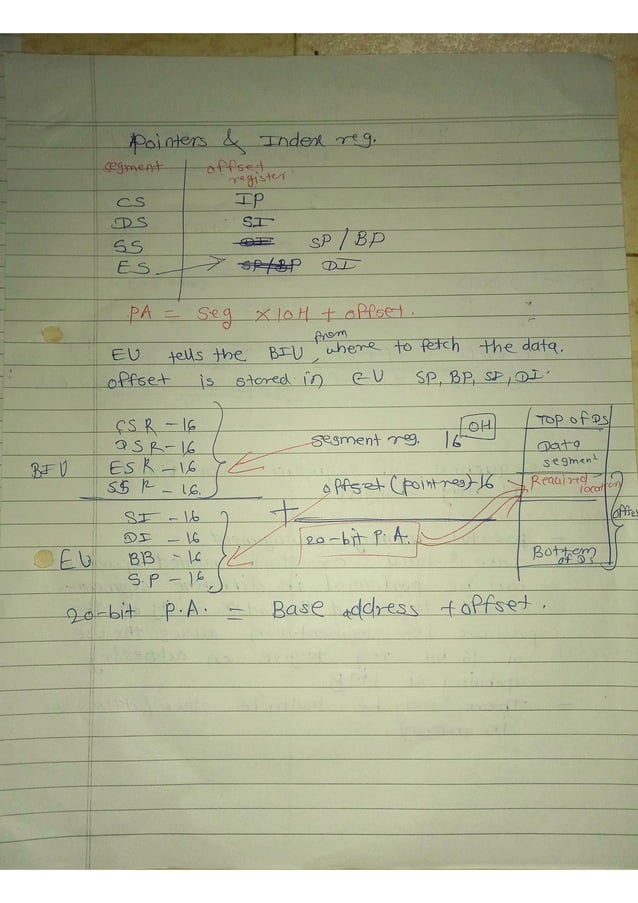 Pointers & Index reg.
segment offset register
CS IP
DS SI
SS DI SP / BP
ES SP/BP DI
PA = Seg X10H + offset.
EU tells the BIU, from where to fetch the data.
offset is stored in EU SP, BP, SI, DI.
CSR - 16
DSR - 16
BIU ESR - 16
SSR - 16.
SI - 16
DI - 16
EU BB - 16
S.P - 16.
segment reg. 16 0H
offset (point reg) 16
+
20-bit P.A.
TOP of DS
Data segment
Required location
Bottom of DS
offset
20-bit P.A. = Base address + offset.